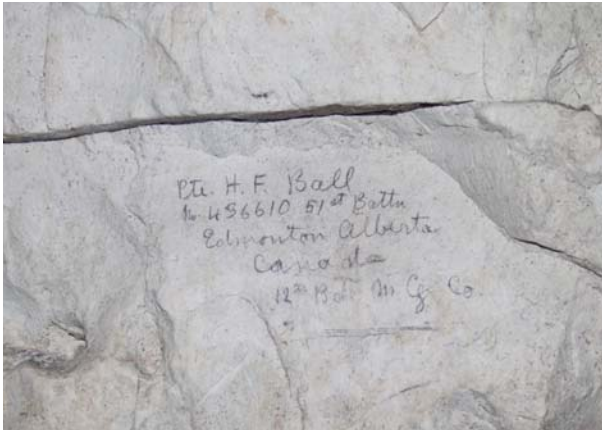 Pte. H. F. Ball
No 436610 51st Battn
Edmonton Alberta
Canada
12th M G Co.